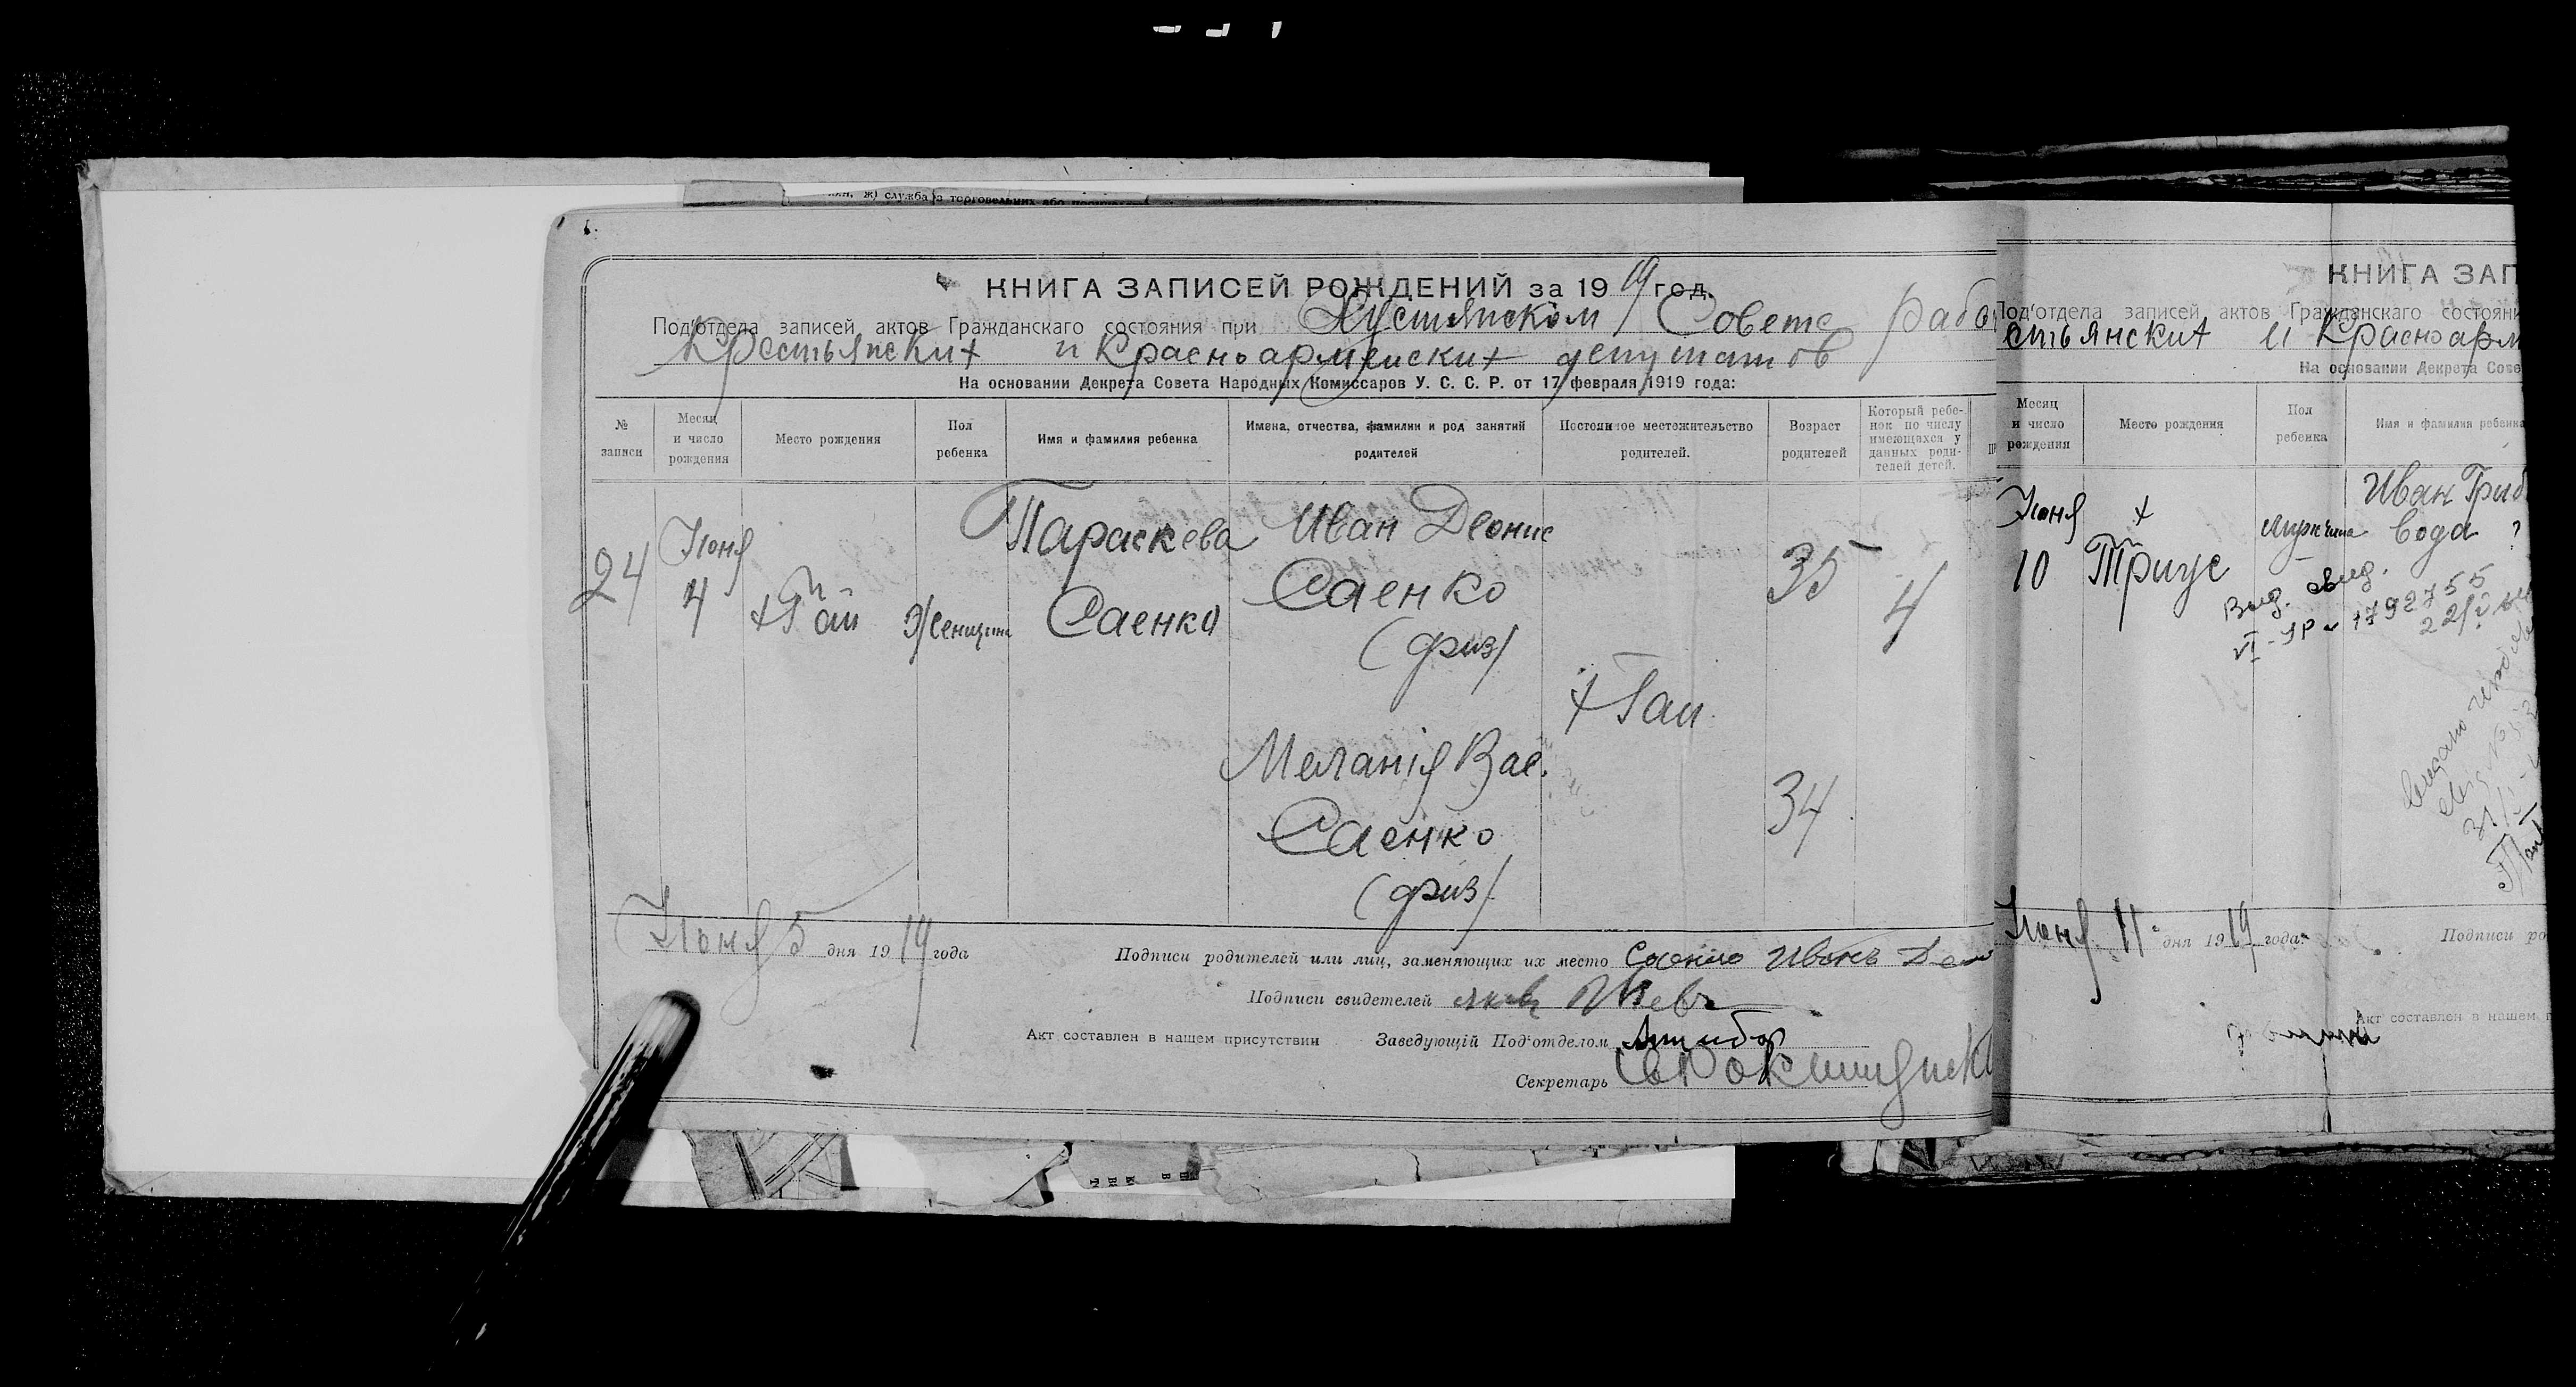 КНИГА ЗАПИСЕЙ РОЖДЕНИЙ за 1919 год.
Под'отдела записей актов Гражданскаго состояния при Хустянском Совете рабо
Крестьянских и Красноармейских депутатов
На основании Декрета Совета Народных Комиссаров У. С. С. Р. от 17 февраля 1919 года:
№ записи
Месяц и число рождения
Место рождения
Пол ребенка
Имя и фамилия ребенка
Имена, отчества, фамилии и род занятий родителей
Постоянное местожительство родителей.
Возраст родителей
Который ребенок по числу имеющихся у данных родителей детей.
24
Июня
4
х Гай
Женщина
Параскева
Саенко
Иван Деонис
Саенко
(физ)
35
4
х Гай
Меланія Вас.
Саенко
(физ)
34
Июня 5 дня 1919 года
Подписи родителей или лиц, заменяющих их место Саенко Иванъ Де
Подписи свидетелей
Акт составлен в нашем присутствии Заведующій Под'отделом
Секретарь
КНИГА ЗАП
Под'отдела записей актов Гражданскаго состояни
стьянских и Красноарм
На основании Декрета Сове
Месяц и число рождения
Место рождения
Пол ребенка
Имя и фамилия ребенка
Июня
10
х
Тригус
мужчина
Иван Гриб
вода ?
Выд. свид.
VI-ЯР № 1792755
Июня 11 дня 1919 года.
Подписи ро
Акт составлен в нашем п